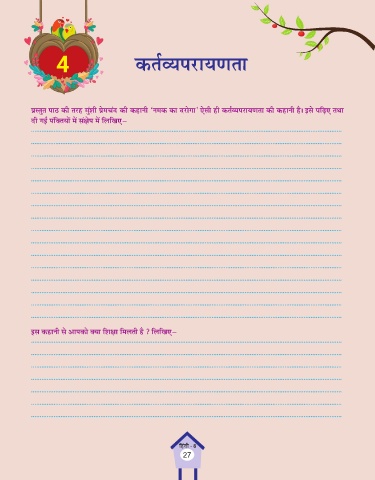 4
कर्तव्यपरायणता
प्रस्तुत पाठ की तरह मुंशी प्रेमचंद की कहानी 'नमक का दरोगा' ऐसी ही कर्तव्यपरायणता की कहानी है। इसे पढ़िए तथा
दी गई पंक्तियों में संक्षेप में लिखिए–
इस कहानी से आपको क्या शिक्षा मिलती है ? लिखिए–
हिंदी - 8
27